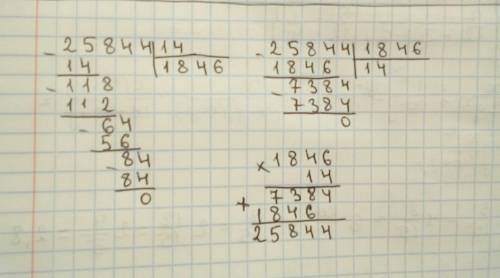 - 25844 | 14
14 | 1846
- 118
112
- 64
56
- 84
84
0
- 25844 | 1846
1846 | 14
- 7384
7384
0
× 1846
14
+ 7384
1846
25844